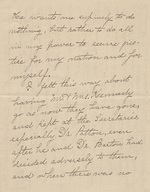 He wants me supinely to do
nothing, but rather to do all
in my power to secure jus-
tice for my station and for
myself.
I felt this way about
having Mr & Mrs. Kennedy
go as now they have gone,
and kept at the Secretaries
especially Dr. Pitton, even
after he and Dr. Barton had
decided adversely to them,
and when there was no